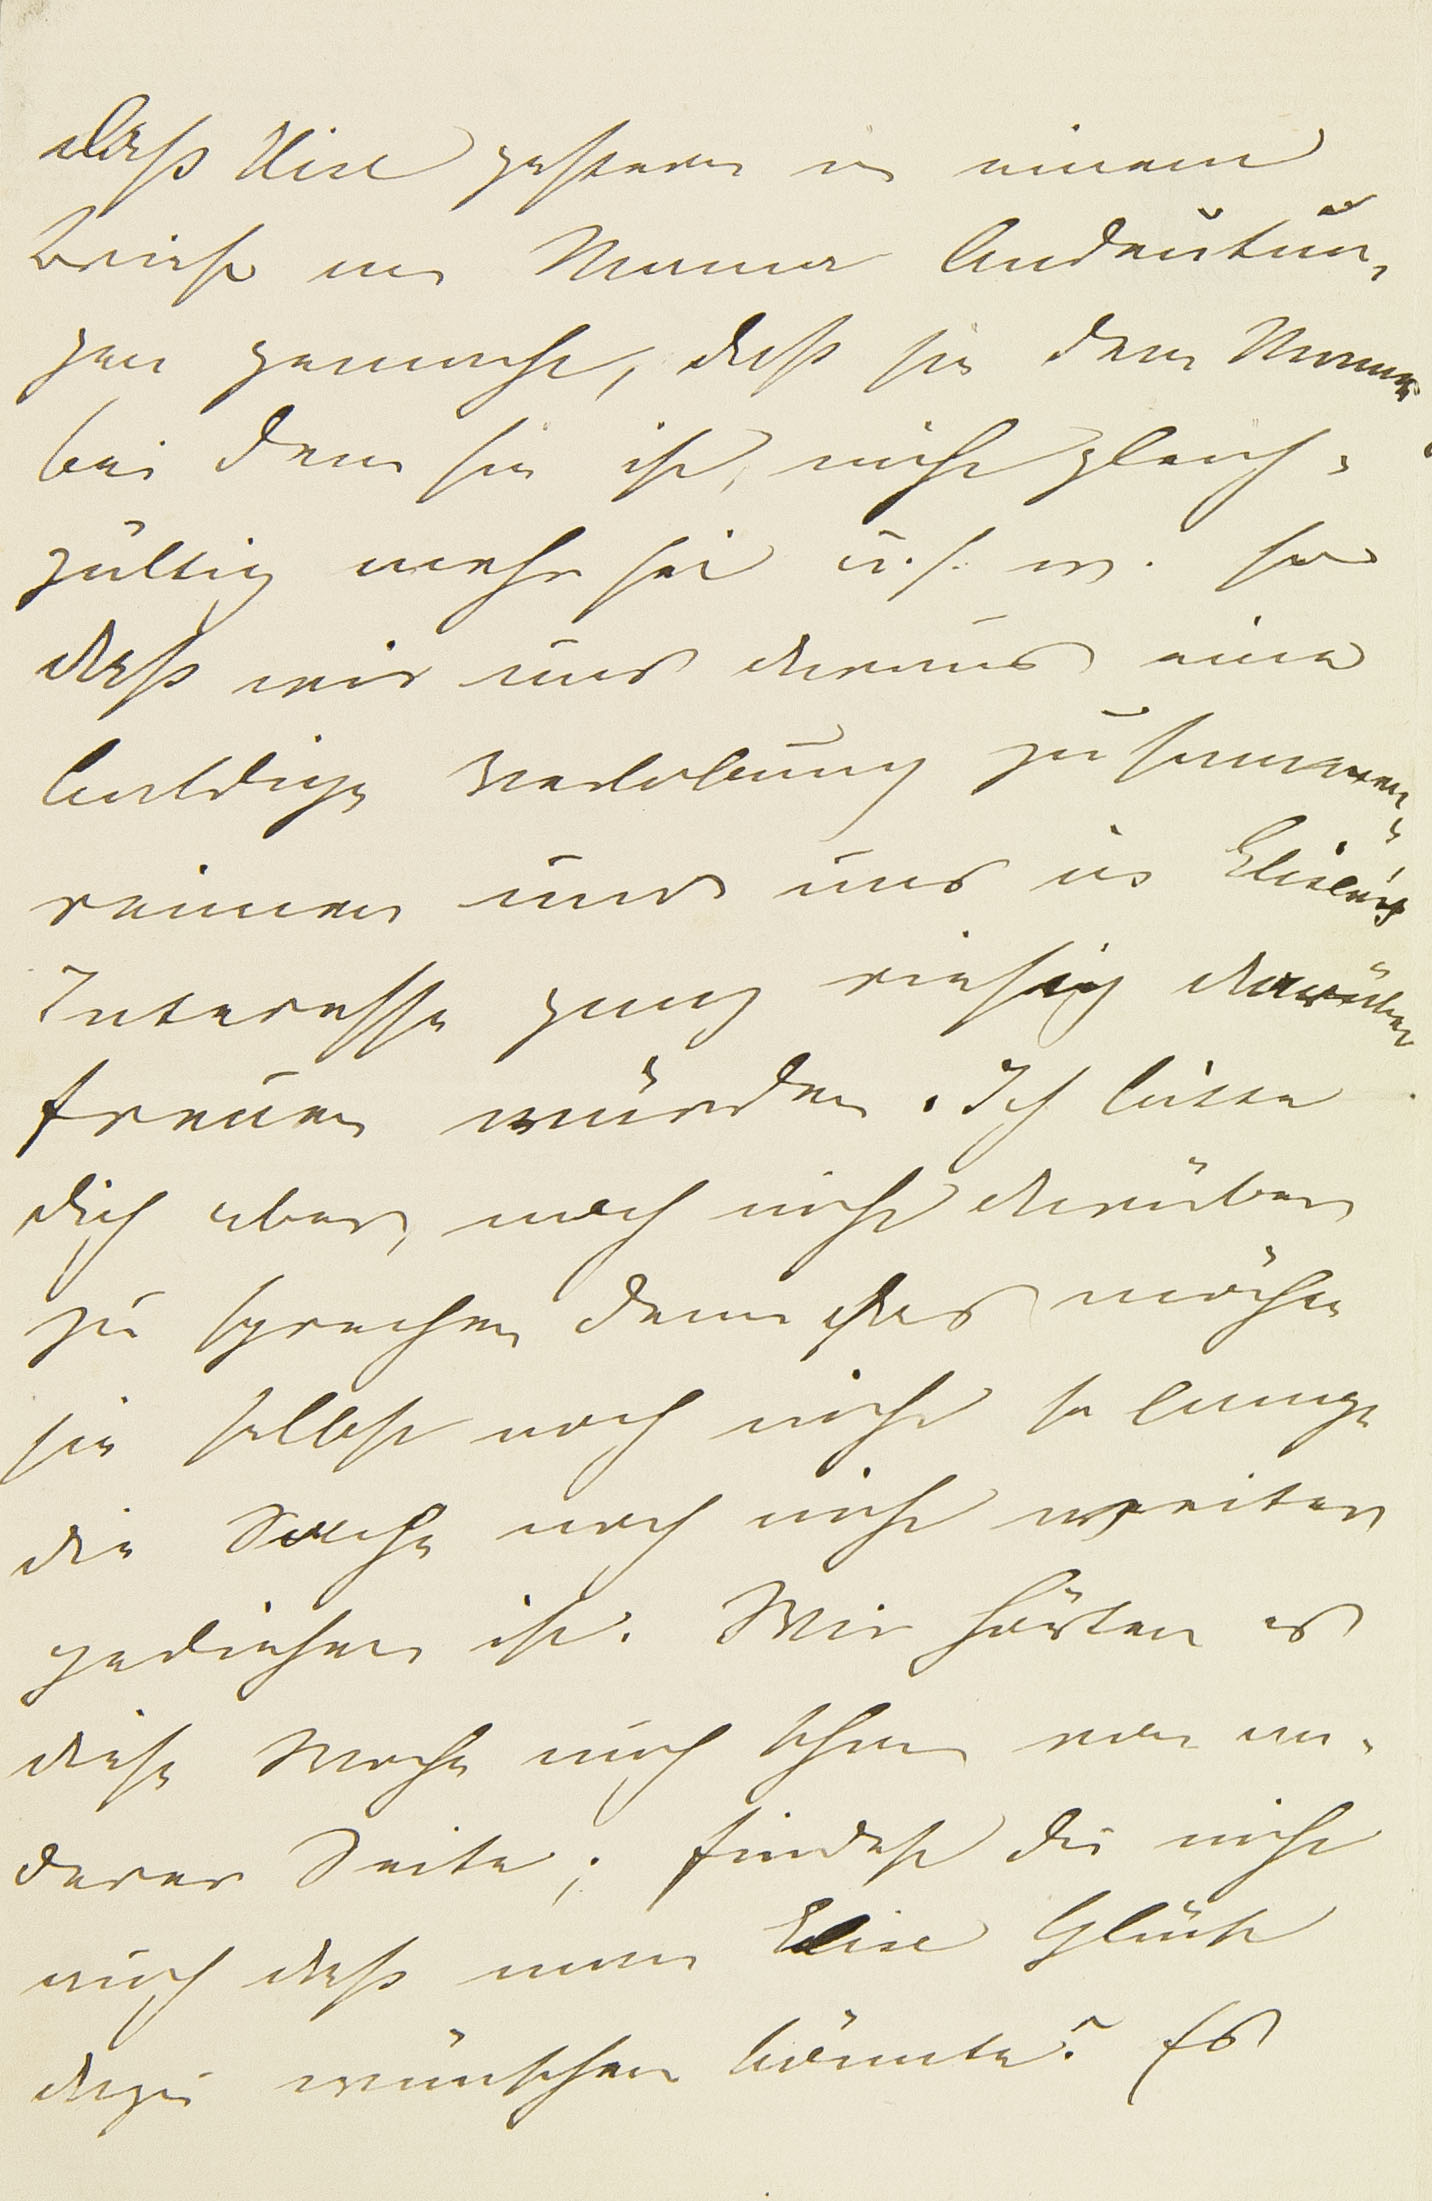 daß Elise gestern in einem
Briefe an Mama Andeutun-
gen gemacht, daß sie dem Manne
bei dem sie ist, nicht gleich-
gültig mehr sei u. s. w. so
daß wir uns daraus eine
baldige Verlobung zusammen-
reimen und uns in Elisens
Interesse ganz riesig darüber
freuen würden. Ich bitte
dich aber, noch nicht darüber
zu sprechen denn das möchte
sie selbst noch nicht so lange
die Sache noch nicht weiter
gediehen ist. Wir hörten es
diese Woche auch schon von an-
derer Seite; findest du nicht
auch daß man Elise Glück
dazu wünschen könnte? Es